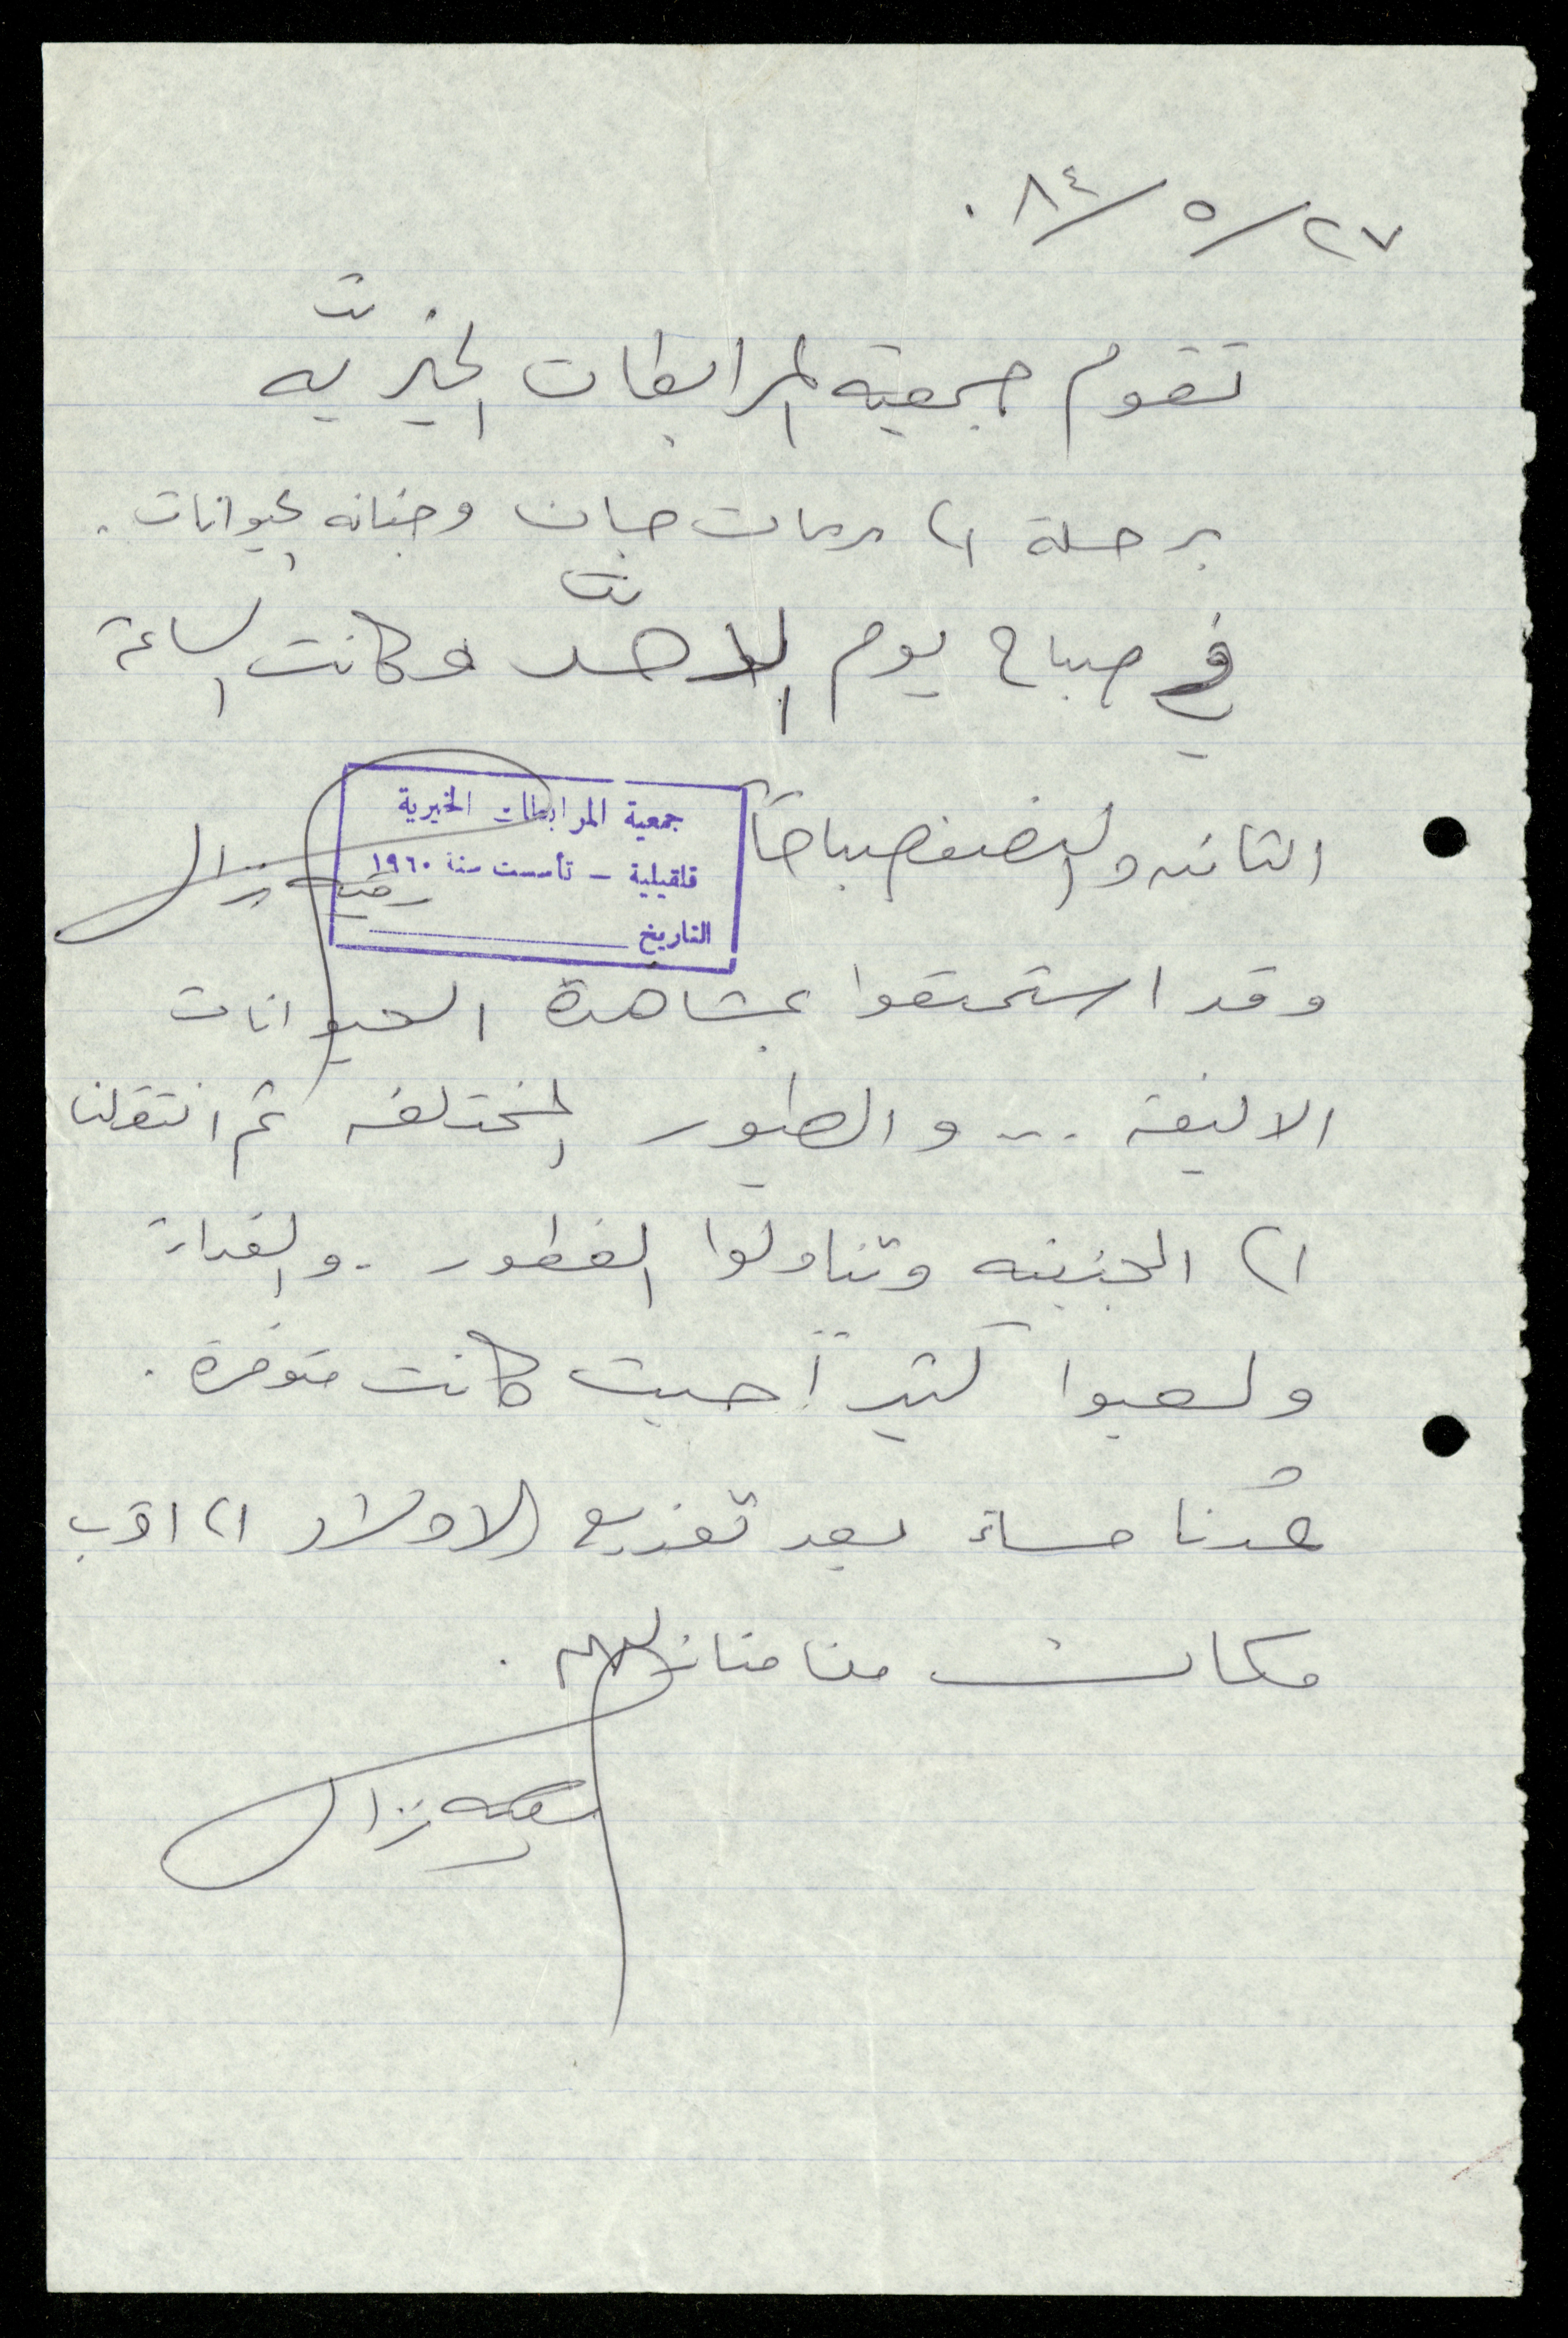 ٢٧/٥/٨٤.
تقوم جمعية المرابطات الخيريّه
برحلة الى رمات جان وجنانه الحيوانات.
في صباح يوم الاحد وكانت الساعة
الثامنه والنصف صباحاً
جمعية المرابطات الخيرية
قلقيلية - تأسست سنة ١٩٦٠
التاريخ
نزال
وقد استمتعوا بمشاهدة الحيوانات
الاليفة ... والطيور المختلفه ثم انتقلنا
الى الجنينه وتناولوا الفطور . والغداء
ولعبوا كثيراً حيث كانت متوفرة .
عُدنا مساءً بعد توزيع الاولاد الى اقرب
مكان من منازلهم .
نزال